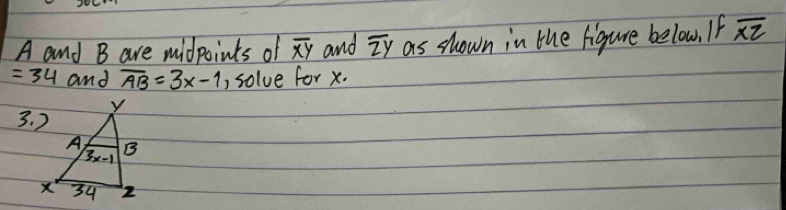 A and B are midpoints of XY and ZY as shown in the figure below. If XZ
= 34 and AB = 3x-1, solve for x.
3.)
Y
A B
3x-1
X 34 Z